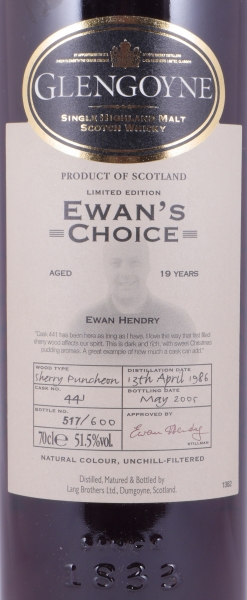 GLENGOYNE
SINGLE HIGHLAND MALT
SCOTCH WHISKY
PRODUCT OF SCOTLAND
LIMITED EDITION
EWAN'S
CHOICE
AGED 19 YEARS
EWAN HENDRY
"Cask 441 has been here as long as I have. I love the way that first filled
sherry wood affects our spirit. This is dark and rich, with sweet Christmas
pudding aromas. A great example of how much a cask can add."
WOOD TYPE DISTILLATION DATE
Sherry Puncheon 13th April 1986
CASK NO. BOTTLING DATE
441 May 2005
BOTTLE NO. APPROVED BY
517/600
70cl e 51.5%vol Ewan Hendry
STILLMAN
NATURAL COLOUR, UNCHILL-FILTERED
Distilled, Matured & Bottled by
Lang Brothers Ltd., Dumgoyne, Scotland.
1362
1833